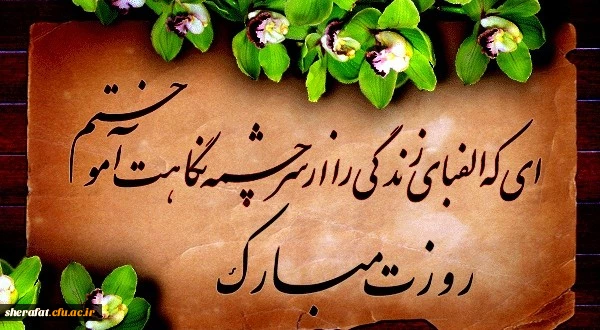 ای که الفبای زندگی را از سرچشمه نگاهت آموختم
روزت مبارک
sherafat.cfu.ac.ir